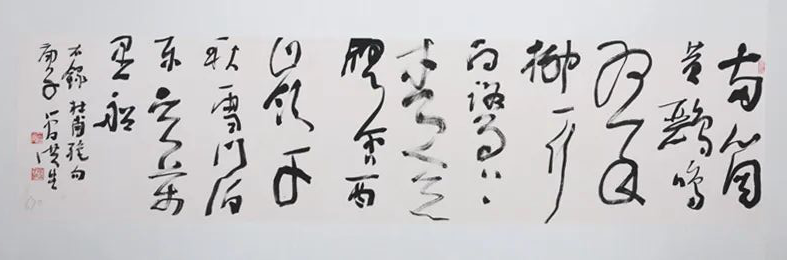 兩箇
黃鸝鳴
翠
柳一行
白鷺上
青天
窗含西
嶺千
秋雪門泊
東吳萬
里船
右錄杜甫絕句
庚子 洪生